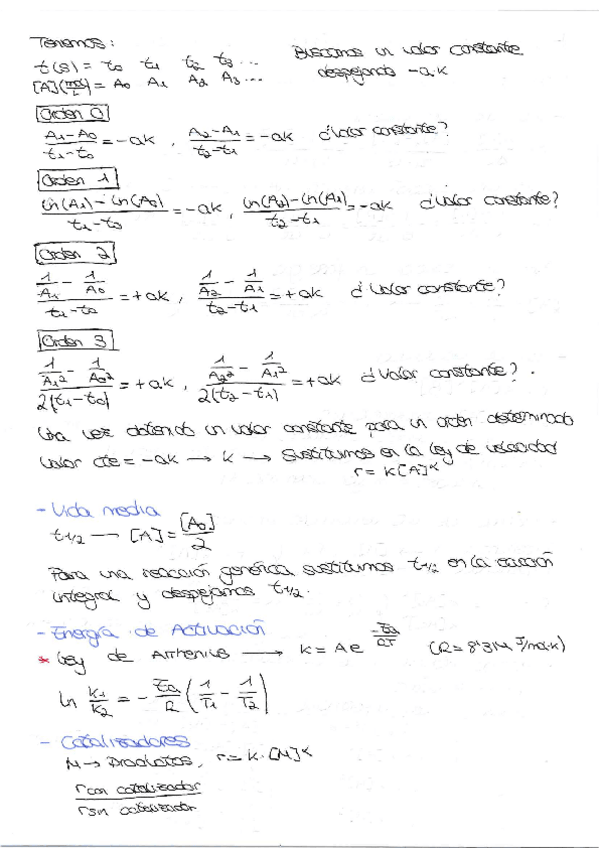 Tenemos:
t(s) = t₀ t₁ t₂ t₃ ... Buscamos un valor constante
[A](mol/L) = A₀ A₁ A₂ A₃ ... despejando -a·k
Orden 0
(A₁-A₀)/(t₁-t₀) = -ak , (A₂-A₁)/(t₂-t₁) = -ak ¿Valor constante?
Orden 1
(ln(A₁) - ln(A₀))/(t₁-t₀) = -ak, (ln(A₂) - ln(A₁))/(t₂-t₁) = -ak ¿Valor constante?
Orden 2
(1/A₁ - 1/A₀)/(t₁-t₀) = +ak , (1/A₂ - 1/A₁)/(t₂-t₁) = +ak ¿Valor constante?
Orden 3
(1/A₁² - 1/A₀²)/(2(t₁-t₀)) = +ak , (1/A₂² - 1/A₁²)/(2(t₂-t₁)) = +ak ¿Valor constante?.
Una vez obtenido un valor constante para un orden determinado
Valor cte = -ak → k → Sustituimos en la ley de velocidad
r = k[A]^α
- Vida media
t₁/₂ — [A] = [A₀]/2
Para una reacción genérica sustituimos t₁/₂ en la ecuación
integral y despejamos t₁/₂.
- Energía de Activación
* Ley de Arrhenius → k = Ae^(-Ea/RT) (R = 8'314 J/mol·k)
ln k₁/k₂ = - Ea/R (1/T₁ - 1/T₂)
- Catalizadores
M → Productos, r = k·[M]^α
r con catalizador
r sin catalizador